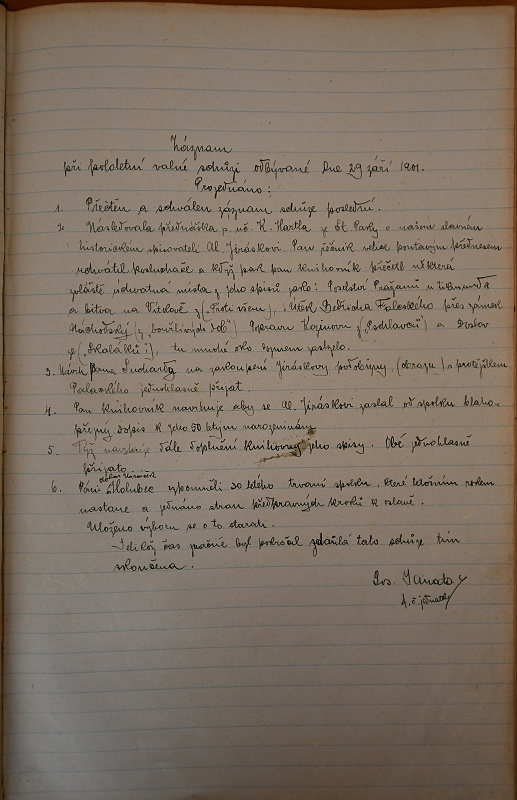 Záznam
při pololetní valné schůzi odbývané dne 29 září 1901.
Projednáno:
1. Přečten a schválen záznam schůze poslední.
2. Následovala přednáška p. uč. K. Hartla ze St. Paky o našem slavném
historickém spisovateli Al. Jiráskovi. Pan řečník velice poutavým přednesem
uchvátil posluchače a když pak pan knihovník přečetl některá
zvláště úchvatná místa z jeho spisů jako: Poselství Pražanů u Sikmunda
a bitva na Vítkově z („Proti všem"), Útěk Bedřicha Falckého přes zámek
Náchodský (z „bouřlivých dob") Poprava Kozinova z („Psohlavců") a
z („Skaláků"), tu mnohé oko zaslzelo.
3. Návrh pana Suchardy na zakoupení Jiráskovy podobizny, (obrazu) s protějškem
Palackého jednohlasně přijat.
4. Pan knihovník navrhuje aby se Al. Jiráskovi zaslal od spolku blaho-
přejný dopis k jeho 50 letým narozeninám.
5. Týž navrhuje dále doplnění knihovny jeho spisy. Obé jednohlasně
přijato.
6. Páni Holubec vzpomněli 30 letého trvání spolku, které letošním rokem
nastane a jednáno stran předpravných kroků k oslavě.
Uloženo výboru se o to starati.
Jelikož čas značně byl pokročil zdařilá tato schůze tím
skončena.
Jos. Janata
t. č. jednatel